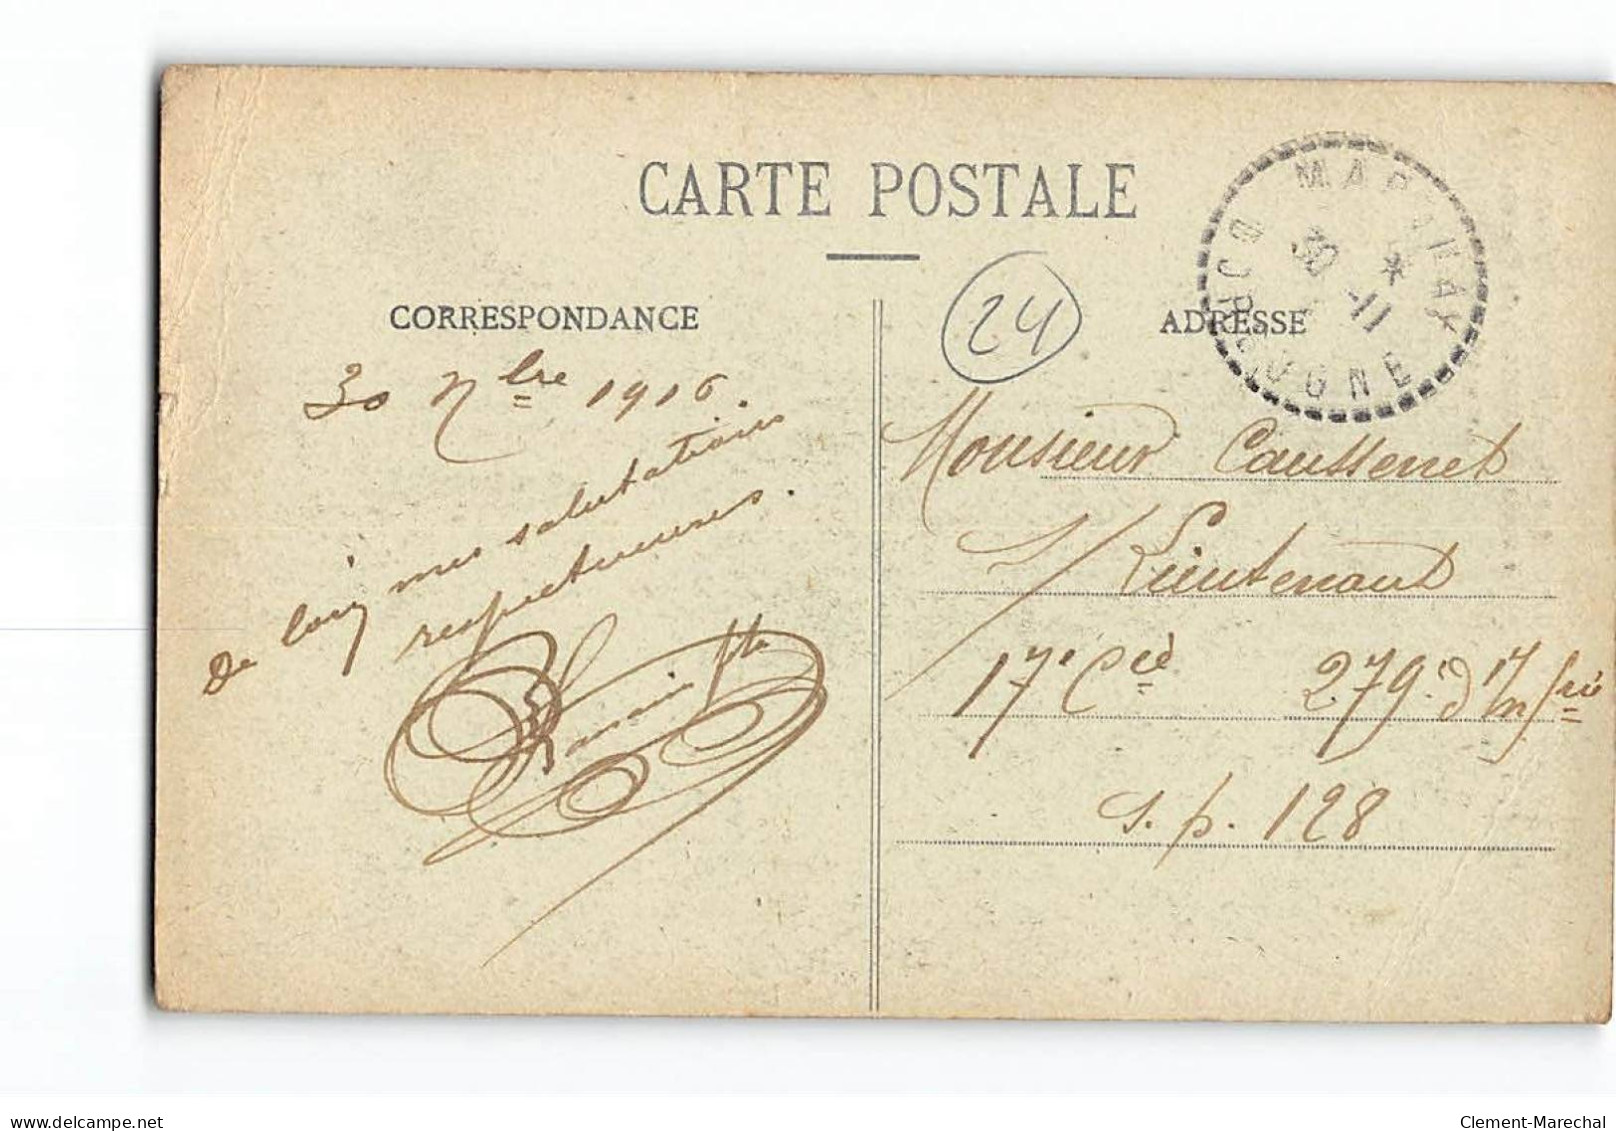 CARTE POSTALE
24
CORRESPONDANCE
ADRESSE
30 -11 *
DORDOGNE
30 9bre 1916.
De loin mes salutations
respectueuses.
Monsieur Caussenet
s/Lieutenant
17e Cie 279e d'Infrie
s.p. 128
delcampe.net
Clement-Marechal